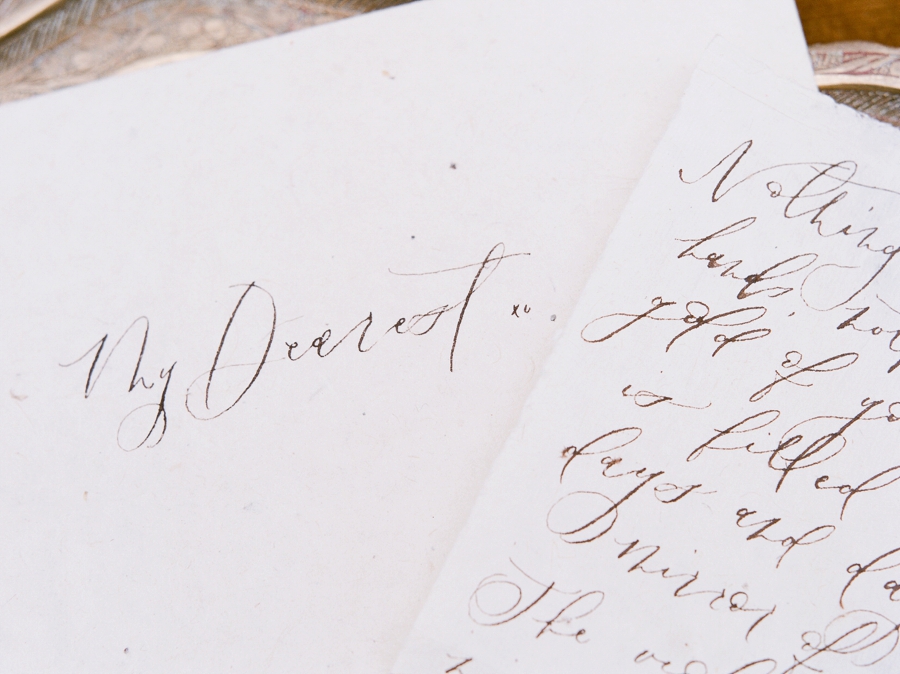 My Dearest xo
Nothing
hands
gold of
is filled
days and
mirror of
The